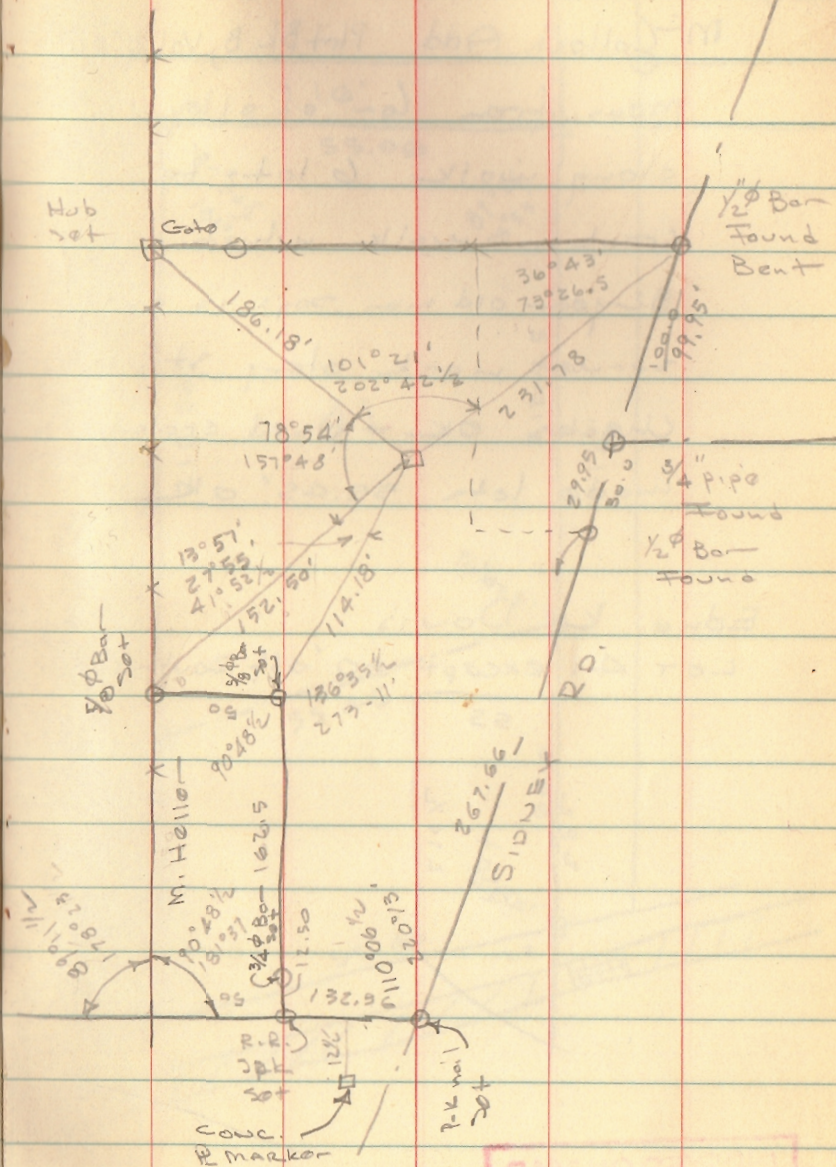 Hub
Set
Gate
1/2"⌀ Bar
Found
Bent
36°43'
73°26.5
186.18'
101°21'
202°42 1/2
231.78
100.0
99.95'
78°54'
157°48'
29.95
30.0
3/4" pipe
Found
1/2"⌀ Bar
Found
13°57'
27°55'
41°52 1/2
152.50'
114.18'
5/8⌀ Bar
Set
5/8⌀ Bar
Set
136°35 1/2'
273-11'
50
90°48 1/2
RD.
SIDNEY
267.66
M. Heller
162.5
3/4⌀ Bar
Set
12.50
89°11 1/2
178°23
90°48 1/2
181°37
50
132.56
110°06 1/2'
220°13'
R.R.
Spk
Set
12 1/2
P-K nail
Set
Conc.
MARKER